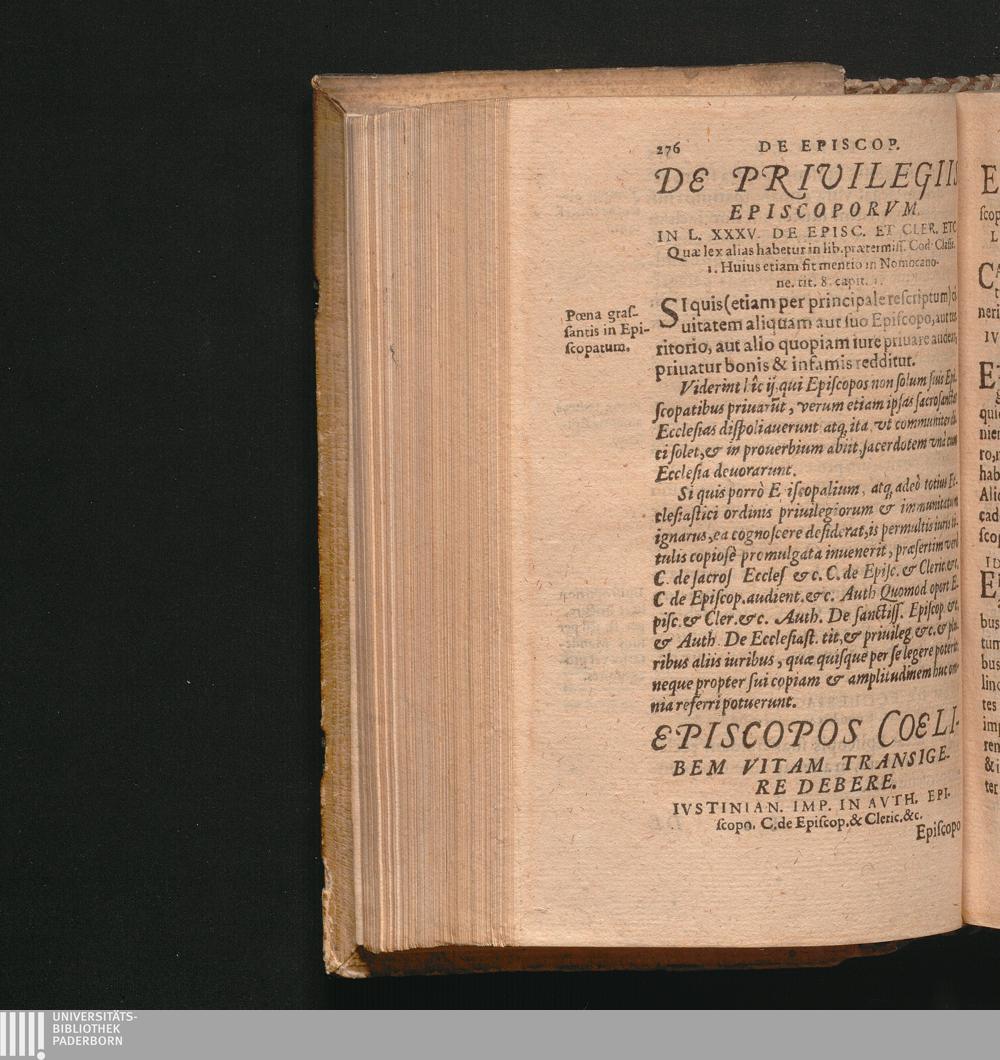 276 DE EPISCOP.
DE PRIVILEGIIS
EPISCOPORVM.
IN L. XXXV. DE EPISC. ET CLER. ETC
Quæ lex alias habetur in lib. prætermiss. Cod. Clasis.
1. Huius etiam fit mentio in Nomocano-
ne. tit. 8. capit. 1.
Pœna gras-
santis in Epi-
scopatum.
SI quis (etiam per principale rescriptum) ci
uitatem aliquam aut suo Episcopo, aut ter
ritorio, aut alio quopiam iure priuare audeat,
priuatur bonis & infamis redditur.
Viderint hîc ij, qui Episcopos non solum suis Epi
scopatibus priuarūt, verum etiam ipsas sacrosanctas
Ecclesias dispoliauerunt atq, ita, vt communiter di
ci solet, & in prouerbium abiit, sacerdotem vnà cum
Ecclesia deuorarunt.
Si quis porrò E iscopalium, atq, adeò totius Ec
clesiastici ordinis priuilegiorum & immunitatum
ignarus, ea cognoscere desiderat, is permultis iuris ti-
tulis copiosè promulgata inuenerit, præsertim verò
C. de sacros Eccles &c. C. de Episc. & Cleric. &c.
C de Episcop. audient. &c. Auth Quomod oport E-
pisc. & Cler. &c. Auth. De sanctiss. Episcop. &c.
& Auth. De Ecclesiast. tit, & priuileg &c. & plu
ribus aliis iuribus, quæ quisque per se legere poterit,
neque propter sui copiam & amplitudinem huc om
nia referri potuerunt.
EPISCOPOS COELI-
BEM VITAM TRANSIGE-
RE DEBERE.
IVSTINIAN. IMP. IN AVTH. EPI-
scopo. C. de Episcop. & Cleric. &c.
Episcopo
E
scop
L
CA
t
neri
IV
ET
g
quic
nien
ro, n
hab
Alio
cad
scop
ID
E
bus
tum
bus
linc
tes
imp
ren
& i
ter
UNIVERSITÄTS-
BIBLIOTHEK
PADERBORN